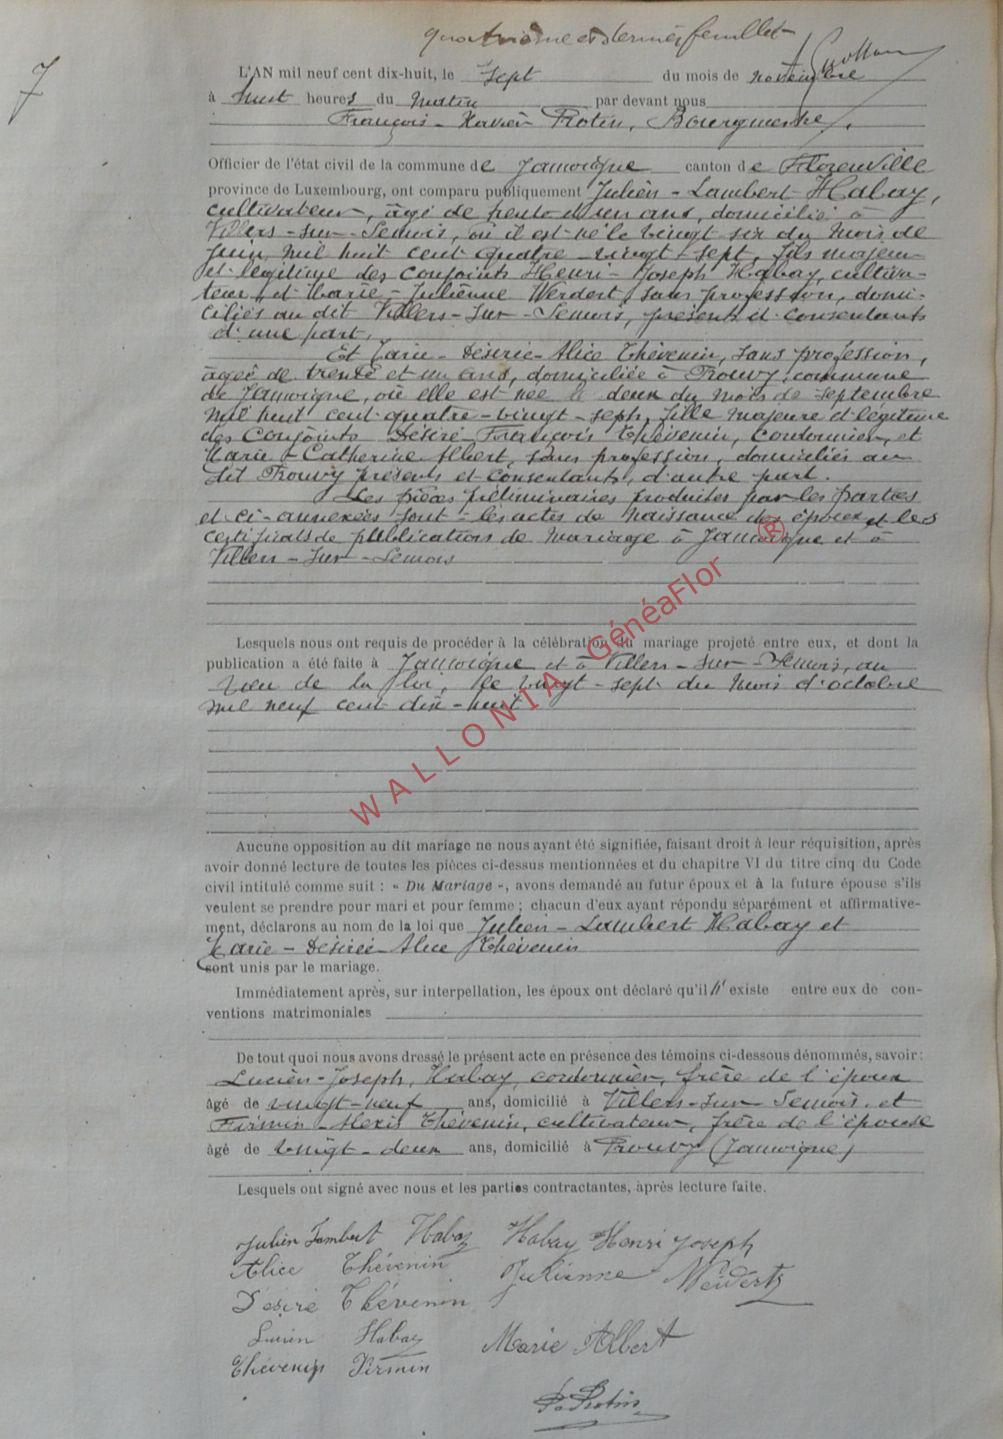 quatrième et dernier feuillet
7
L'AN mil neuf cent dix-huit, le sept du mois de novembre
à huit heures du matin par devant nous
François-Xavier Protin, Bourgmestre,
Officier de l'état civil de la commune de Jamoigne canton de Florenville
province de Luxembourg, ont comparu publiquement Julien-Lambert Habay,
cultivateur, âgé de trente et un ans, domicilié à
Villers-sur-Semois, où il est né le vingt six du mois de
juin mil huit cent quatre-vingt-sept, fils majeur
et légitime des conjoints Henri-Joseph Habay, cultiva-
teur, et Marie-Julienne Werdert, sans profession, domi-
ciliés au dit Villers-sur-Semois, présents et consentants
d'une part,
Et Marie-Désirée-Alice Thévenin, sans profession,
âgée de trente et un ans, domiciliée à Prouvy, commune
de Jamoigne, où elle est née le deux du mois de septembre
mil huit cent quatre-vingt-sept, fille majeure et légitime
des conjoints Désiré-François Thévenin, cordonnier, et
Marie-Catherine Albert, sans profession, domiciliés au
dit Prouvy présents et consentants, d'autre part.
Les pièces préliminaires produites par les parties
et ci-annexées sont: les actes de naissance des époux et les
certificats de publications de mariage à Jamoigne et à
Villers-sur-Semois
Lesquels nous ont requis de procéder à la célébration du mariage projeté entre eux, et dont la
publication a été faite à Jamoigne et à Villers-sur-Semois, au
vœu de la loi, le vingt-sept du mois d'octobre
mil neuf cent dix-huit
WALLONIA GénéaFlor ®
Aucune opposition au dit mariage ne nous ayant été signifiée, faisant droit à leur réquisition, après
avoir donné lecture de toutes les pièces ci-dessus mentionnées et du chapitre VI du titre cinq du Code
civil intitulé comme suit : « Du Mariage », avons demandé au futur époux et à la future épouse s'ils
veulent se prendre pour mari et pour femme ; chacun d'eux ayant répondu séparément et affirmative-
ment, déclarons au nom de la loi que Julien-Lambert Habay et
Marie-Désirée-Alice Thévenin
sont unis par le mariage.
Immédiatement après, sur interpellation, les époux ont déclaré qu'il n'existe entre eux de con-
ventions matrimoniales
De tout quoi nous avons dressé le présent acte en présence des témoins ci-dessous dénommés, savoir :
Lucien-Joseph, Habay, cordonnier, frère de l'époux
âgé de vingt-neuf ans, domicilié à Villers-sur Semois. et
Firmin Alexis Thévenin, cultivateur, frère de l'épouse
âgé de vingt-deux ans, domicilié à Prouvy (Jamoigne)
Lesquels ont signé avec nous et les parties contractantes, après lecture faite.
Julien Lambert Habay Habay Henri Joseph
Alice Thévenin Julienne Weiderts
Désiré Thévenin
Lucien Habay Marie Albert
Thévenin Firmin
Protin